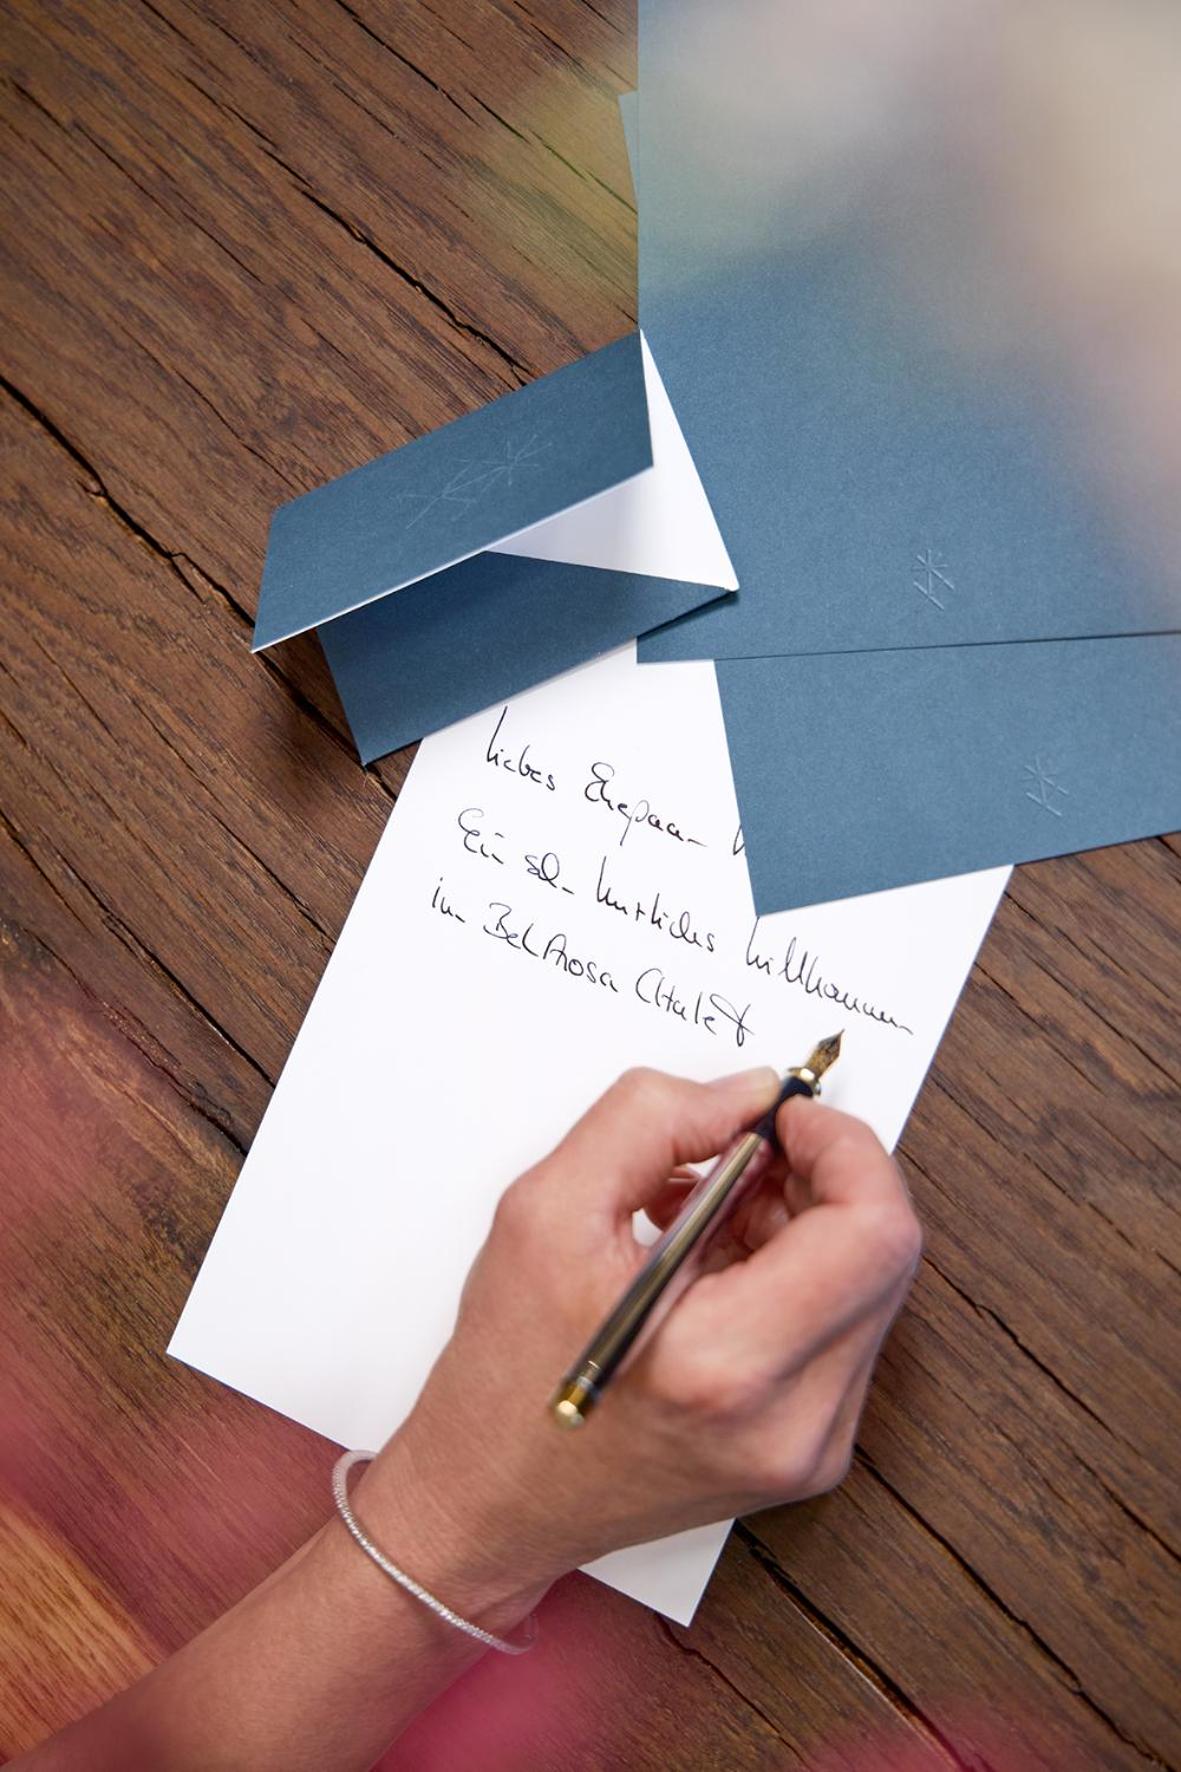 Liebes Ehepaar
Ein sehr herzliches Willkommen
im BelArosa Chalet